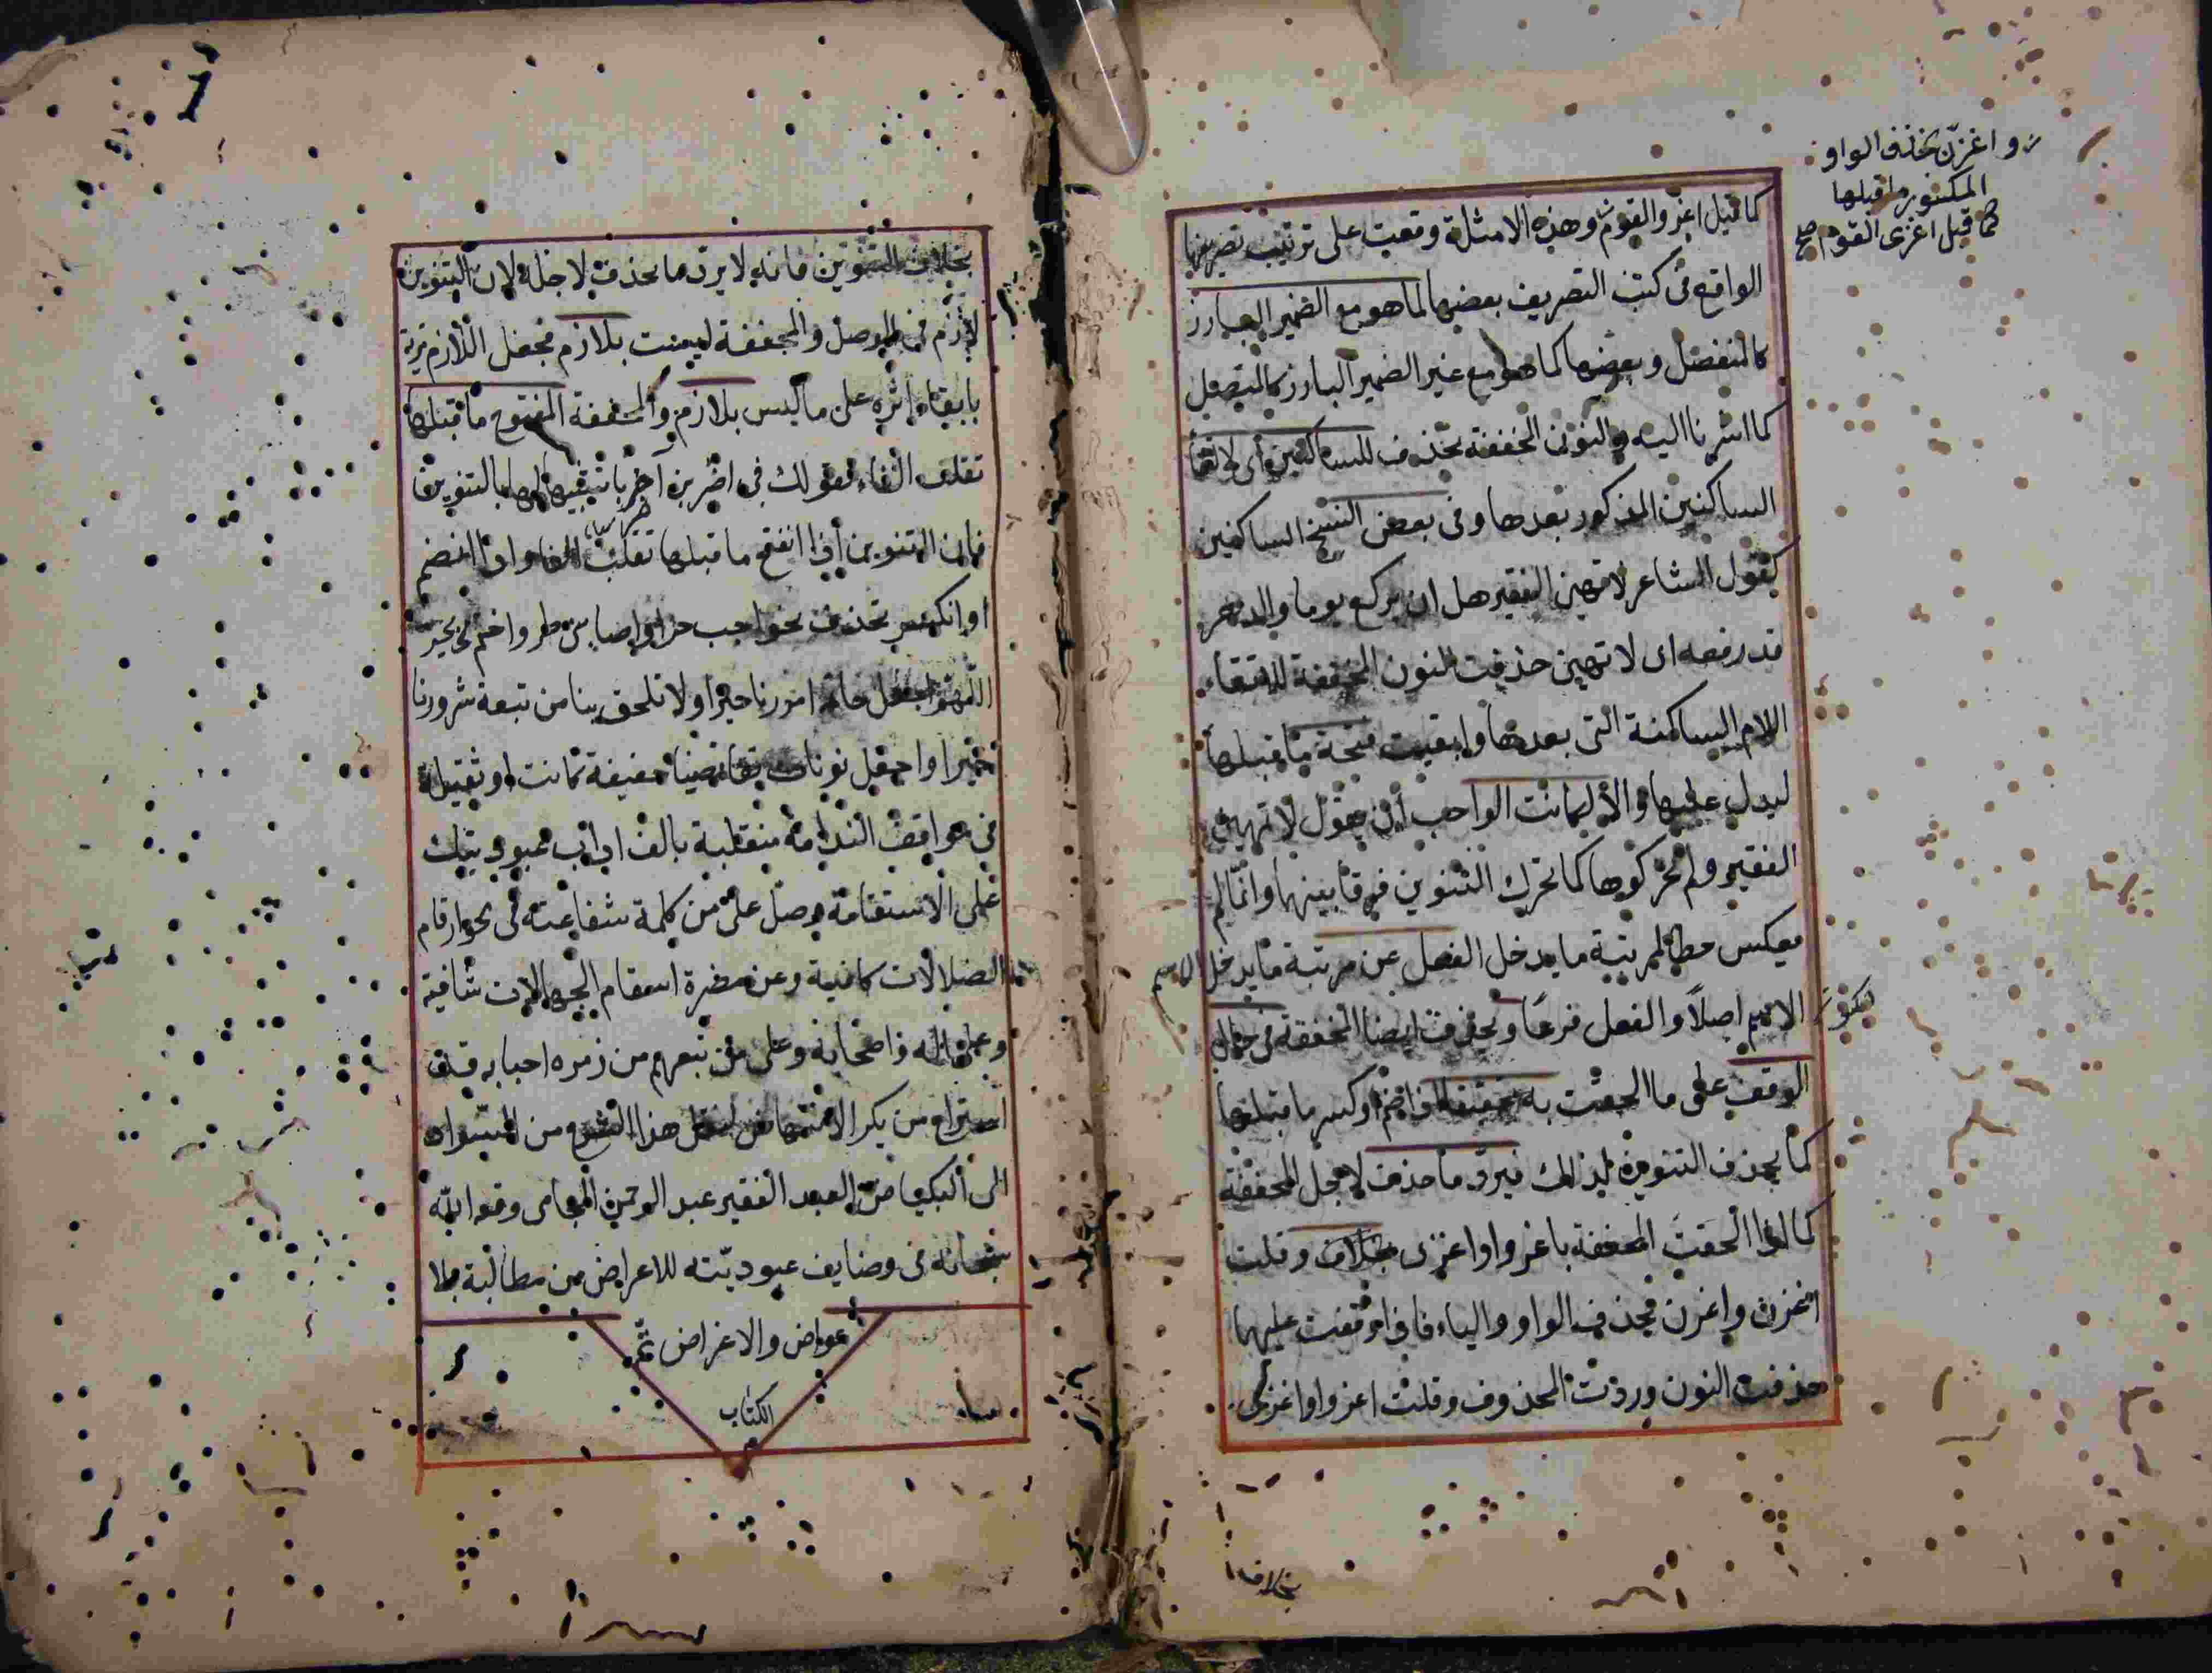 كما قيل اغزو القوم وهذه الامثلة وقعت على ترتيب تصريفها
الواقع فى كتب التصريف بعضها لما هو مع الضمير البارز
كالمنفصل وبعضها كما هو مع غير الضمير البارز كالمتصل
كما اشرنا اليه والنون المخففة تحذف للساكنين أى لالتقاء
الساكنين المذكور بعدها وفى بعض النسخ الساكنين
كقول الشاعر لا تهين الفقير عل ان تركع يوما والدهر
قد رفعه اى لا تهين حذفت النون المخففة لالتقاء
اللام الساكنة التى بعدها وابقيت فتحة ما قبلها
ليدل عليها والا لكانت الواجب أن يقول لا تهين
الفقير ولم يحركوها كما تحرك التنوين فرقا بينهما وانما لم
يعكس حطا لمرتبة ما يدخل الفعل عن مرتبة ما يدخل الاسم
لكون الاسم اصلاً والفعل فرعًا وتحذف ايضا المخففة فى حال
الوقف على ما الحقت به تخفيفا اذا ضم او كسر ما قبلها
كما يحذف التنوين لذلك فيرد ما حذف لاجل المخففة
كما اذا الحقت المخففة باغزوا واغزى وقلت
اغزن واغزن فحذف الواو والياء فاذا وقفت عليهما
حذفت النون ورددت المحذوف وقلت اغزوا واغزى
واغزن بحذف الواو
المكسور ما قبلها
كما قيل اغزى القوم صح
بخلاف
بخلاف التنوين فانه لا يرد ما يحذف لاجله لان التنوين
لازم فى الوصل والمخففة ليست بلازم فجعل اللازم مزية
بابقاء اثره على ما ليس بلازم والمخففة المفتوح ما قبلها
تقلب الفاء فقولك فى اضربن اضربا تشبيها لها بالتنوين
فان التنوين اذا انفتح ما قبلها تقلب الفا واذا انضم
او انكسر تحذف نحو
اللهم اجعل خاتمة امورنا خيرا ولا تلحق بنا من تبعة شرورنا
ضيرا واجعل نونات خفيفة كانت او ثقيلة
فى مواقف الندامة منقلبة بالف
على الاستقامة وصل على من كلمة شفاعته فى نحو ارقام
الضلالات كافية وعن مضرة اسقام الجهالات شافية
وعلى اله واصحابه وعلى من تبعهم من زمره احبابه قد
استراح من نقل هذا الشرح من السواد
الى البياض العبد الفقير عبد الرحمن الجامى وفقه الله
سبحانه فى وضايف عبوديّته للاعراض من مطالبة الا
عواض والاغراض تمّ
الكتاب